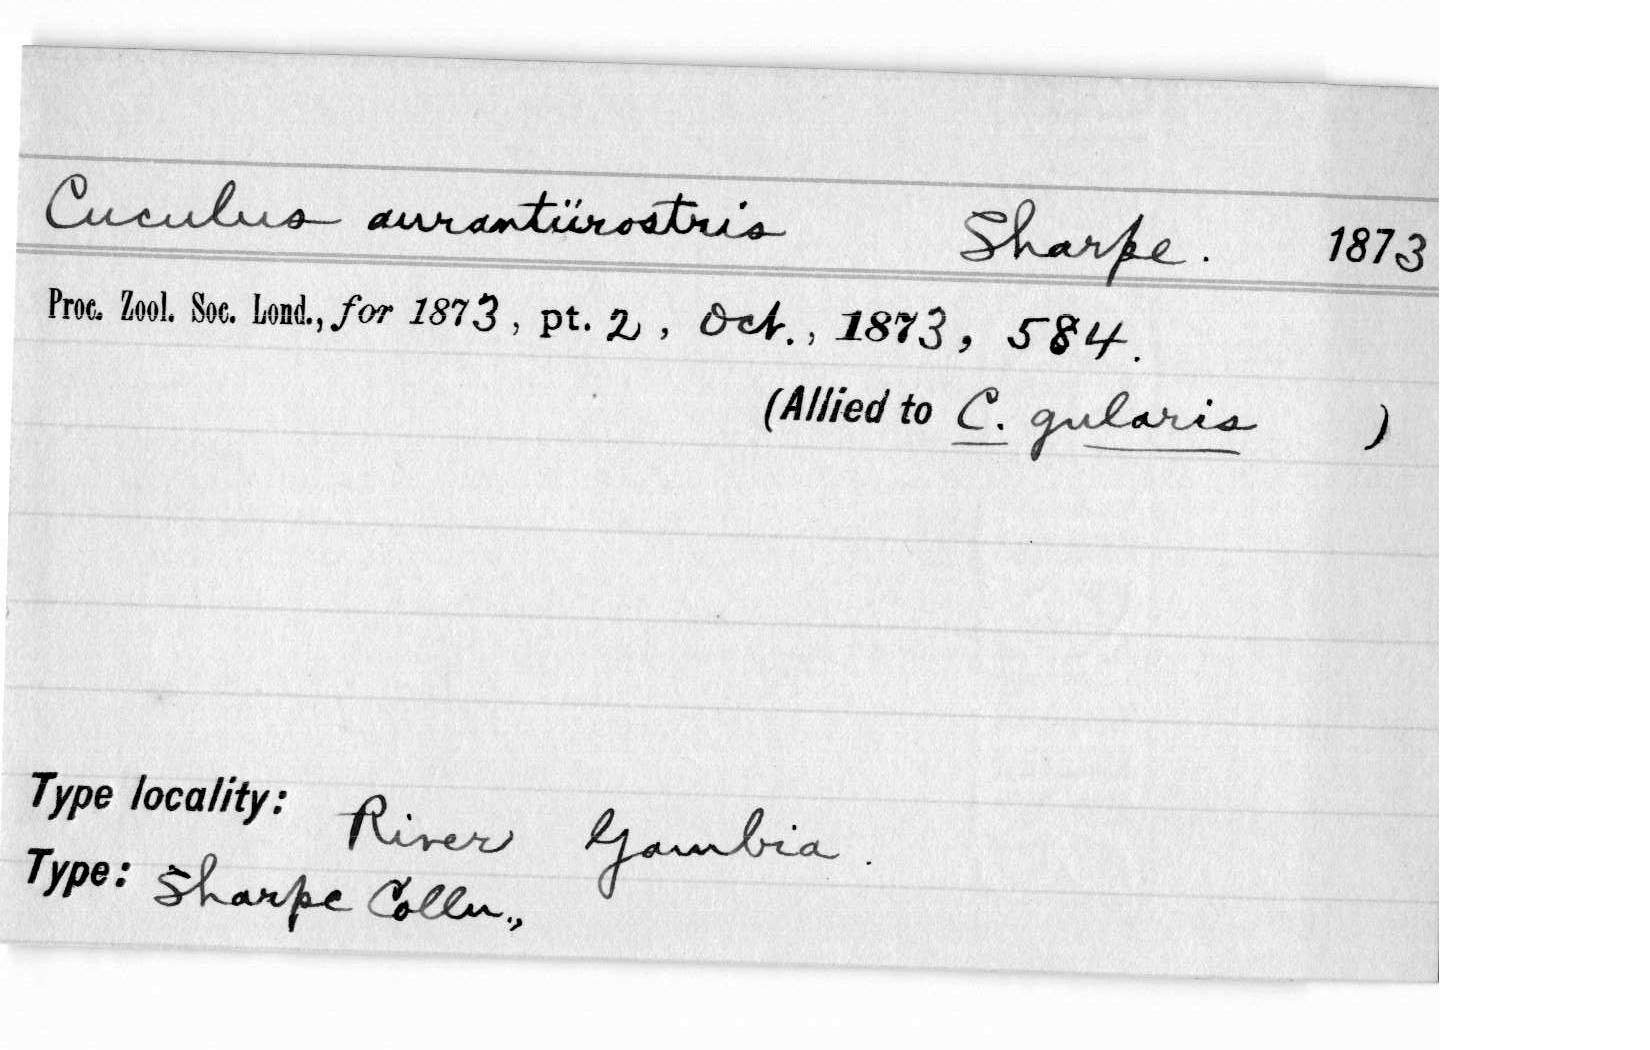 Cuculus aurantiirostris Sharpe. 1873
Proc. Zool. Soc. Lond., for 1873, pt. 2, Oct., 1873, 584.
(Allied to C. gularis )
Type locality: River Gambia.
Type: Sharpe Colln.,